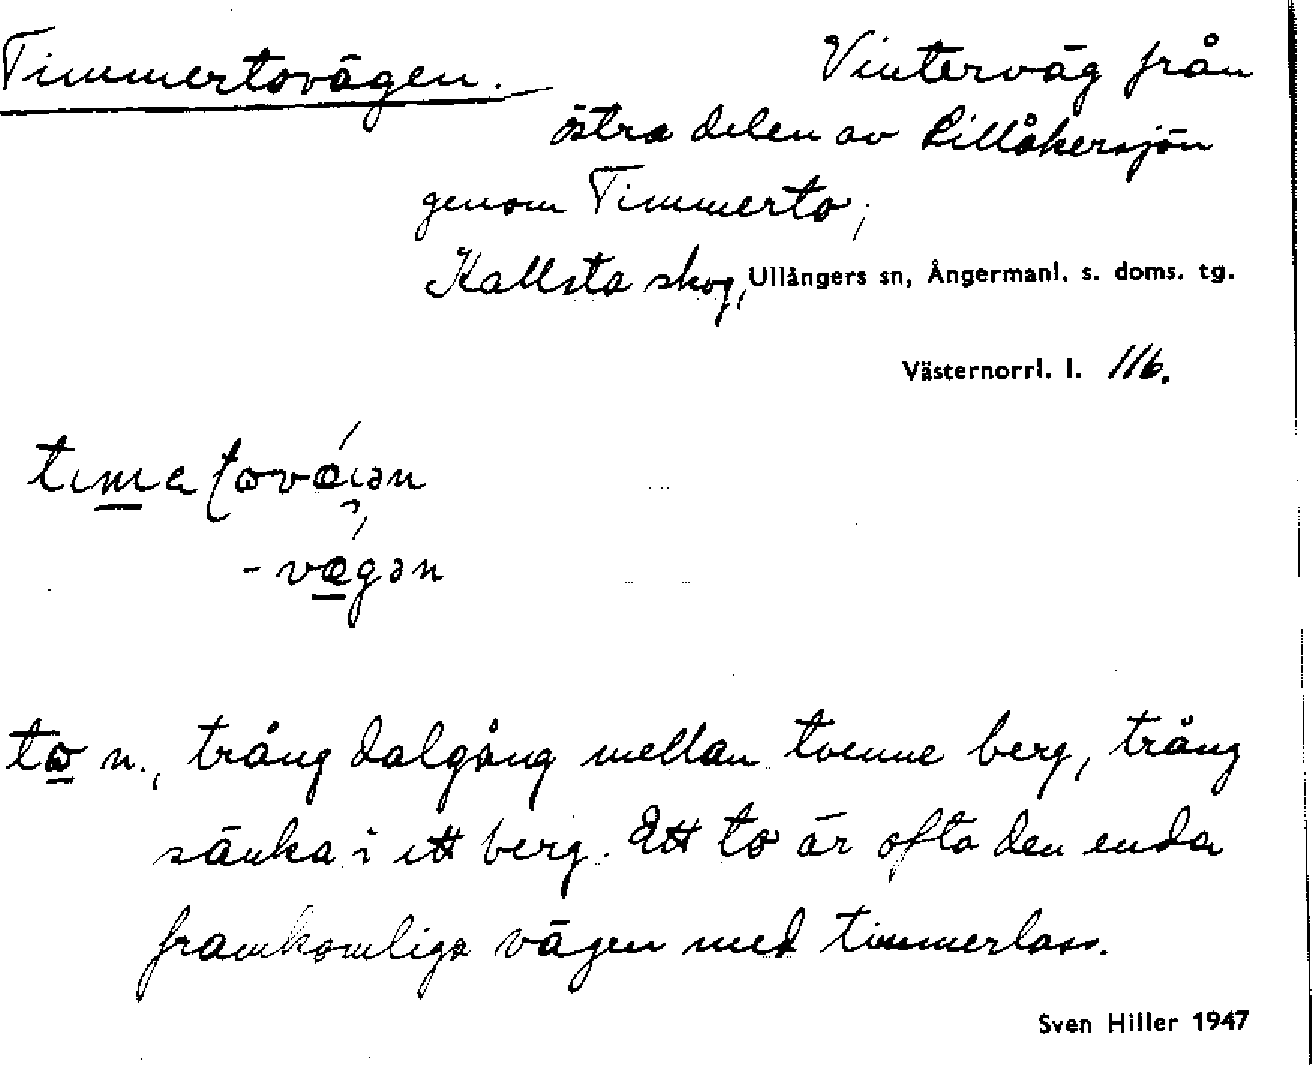 Timmertovägen. Vinterväg från
östra delen av Lillåkersjön
genom Timmerto,
Kallsta skog, Ullångers sn, Ångermanl. s. doms. tg.
Västernorrl. l. 116.
-vægən
to n., trång dalgång mellan tvenne berg, trång
sänka i ett berg. Ett to är ofta den enda
framkomliga vägen med timmerlass.
Sven Hiller 1947